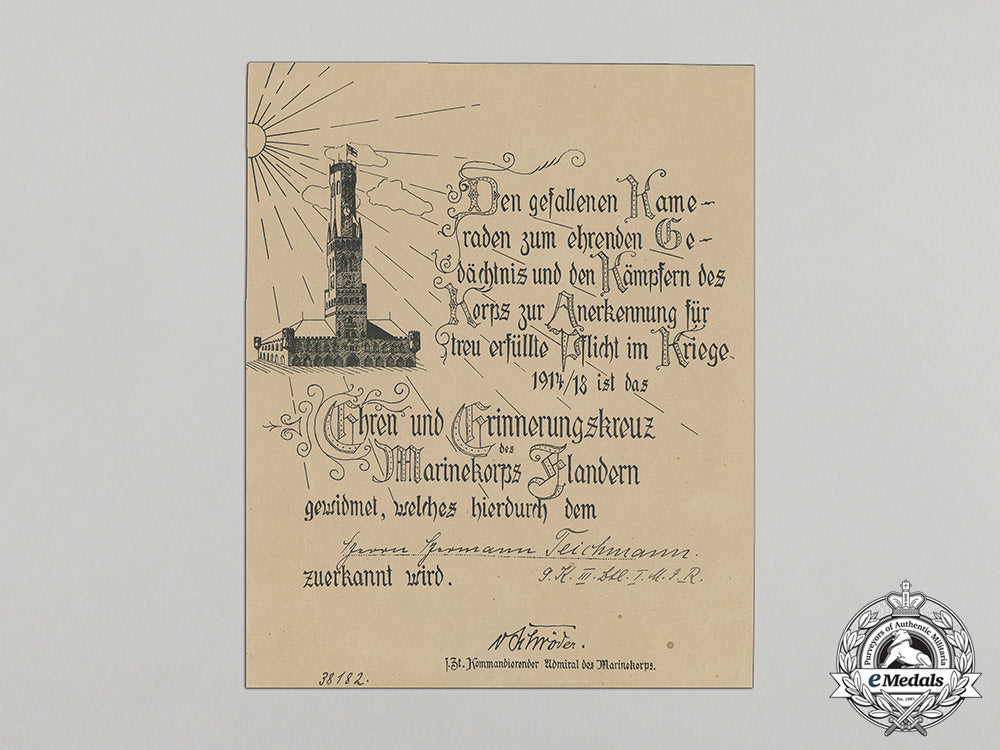 Den gefallenen Kame-
raden zum ehrenden Ge-
dächtnis und den Kämpfern des
Korps zur Anerkennung für
treu erfüllte Pflicht im Kriege
1914/18 ist das
Ehren und Erinnerungskreuz
des
Marinekorps Flandern
gewidmet, welches hierdurch dem
Herrn Hermann Teichmann.
zuerkannt wird.
9. K. III. Btl. I. M. I. R.
v Schröder.
z. Zt. Kommandierender Admiral des Marinekorps.
38182.
Purveyors of Authentic Militaria
eMedals